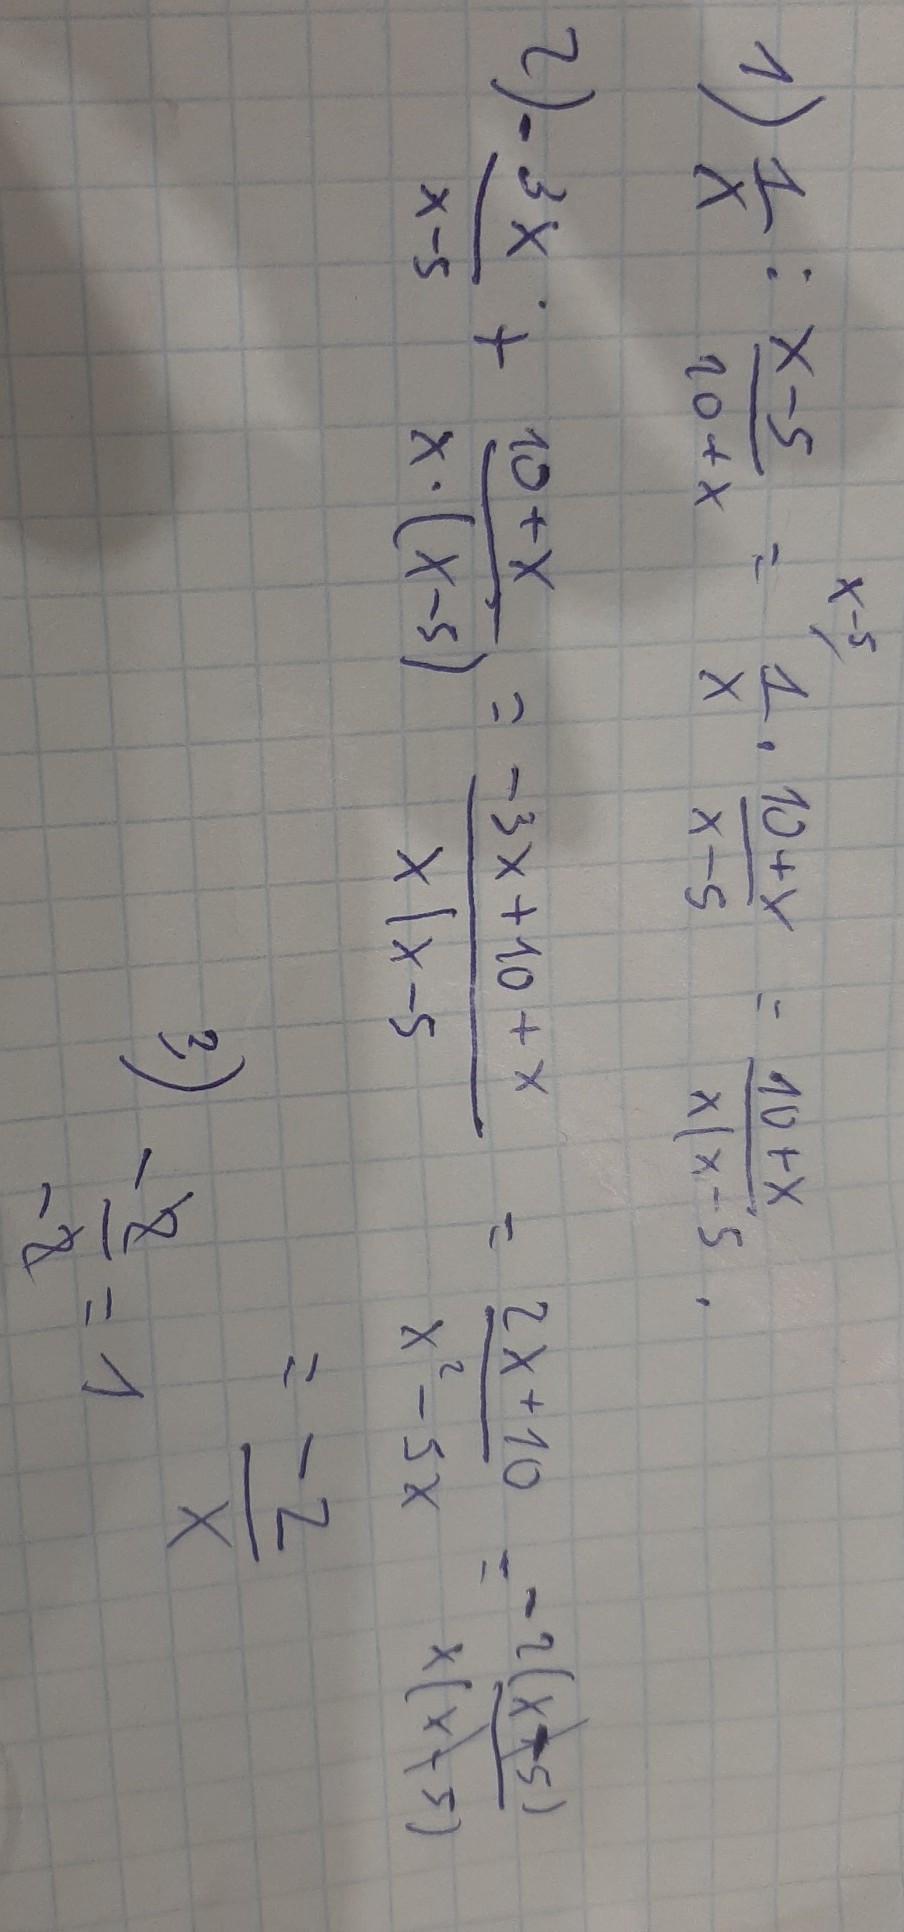 x-5
1) 1/x : (x-5)/(10+x) = 1/x · (10+x)/(x-5) = (10+x)/(x(x-5 .
2) - 3x/(x-5) + (10+x)/(x·(x-5)) = (-3x+10+x)/(x(x-5 = (2x+10)/(x²-5x) = -2(x-5)/(x(x-5)
= -2/x
3) -2/-2 = 1